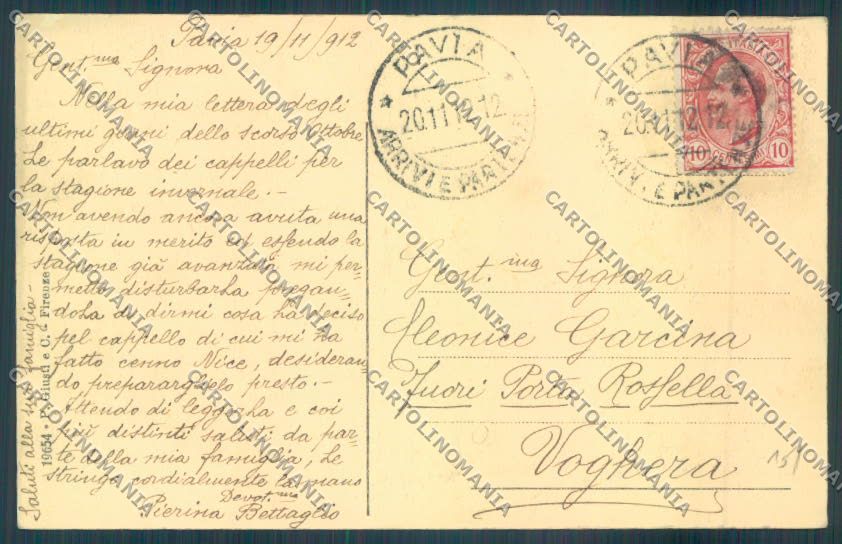 Pavia 19/11/912
Gent.ma Signora
Nella mia lettera degli
ultimi giorni dello scorso Ottobre
Le parlavo dei cappelli per
la stagione invernale. -
Non avendo ancora avuta una
risposta in merito ed essendo la
stagione già avanzata mi per-
metto disturbarla pregan-
dola di dirmi cosa ha deciso
pel cappello di cui mi ha
fatto cenno Nice, desideran-
do prepararglielo presto. -
Attendo di leggerla e coi
più distinti saluti da par-
te della mia famiglia, Le
stringo cordialmente la mano
Devot.ma
Pierina Bettaglio
Saluti alla sua famiglia -
19654 - Giusti e C. - Firenze
PAVIA
20.11.12.12
ARRIVI E PARTENZE
PAVIA
20.11.12.12
ARRIVI E PART
ITALIA
10 CENTESIMI 10
Gent.ma Signora
Cleonice Garcina
Fuori Porta Rossella
Voghera
15
CARTOLINOMANIA